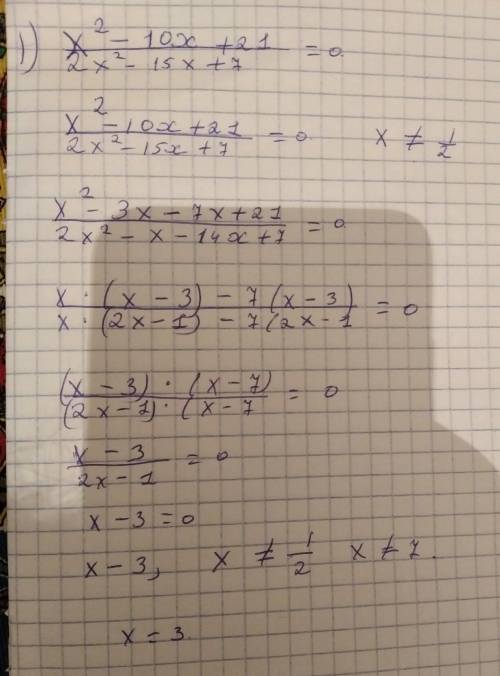 1) x² - 10x + 21 / 2x² - 15x + 7 = 0.
x² - 10x + 21 / 2x² - 15x + 7 = 0. x ≠ 1/2
x² - 3x - 7x + 21 / 2x² - x - 14x + 7 = 0.
x · (x - 3) - 7 (x - 3) / x · (2x - 1) - 7 (2x - 1 = 0
(x - 3) · (x - 7) / (2x - 1) · (x - 7 = 0
x - 3 / 2x - 1 = 0
x - 3 = 0
x - 3, x ≠ 1/2 x ≠ 7.
x = 3.